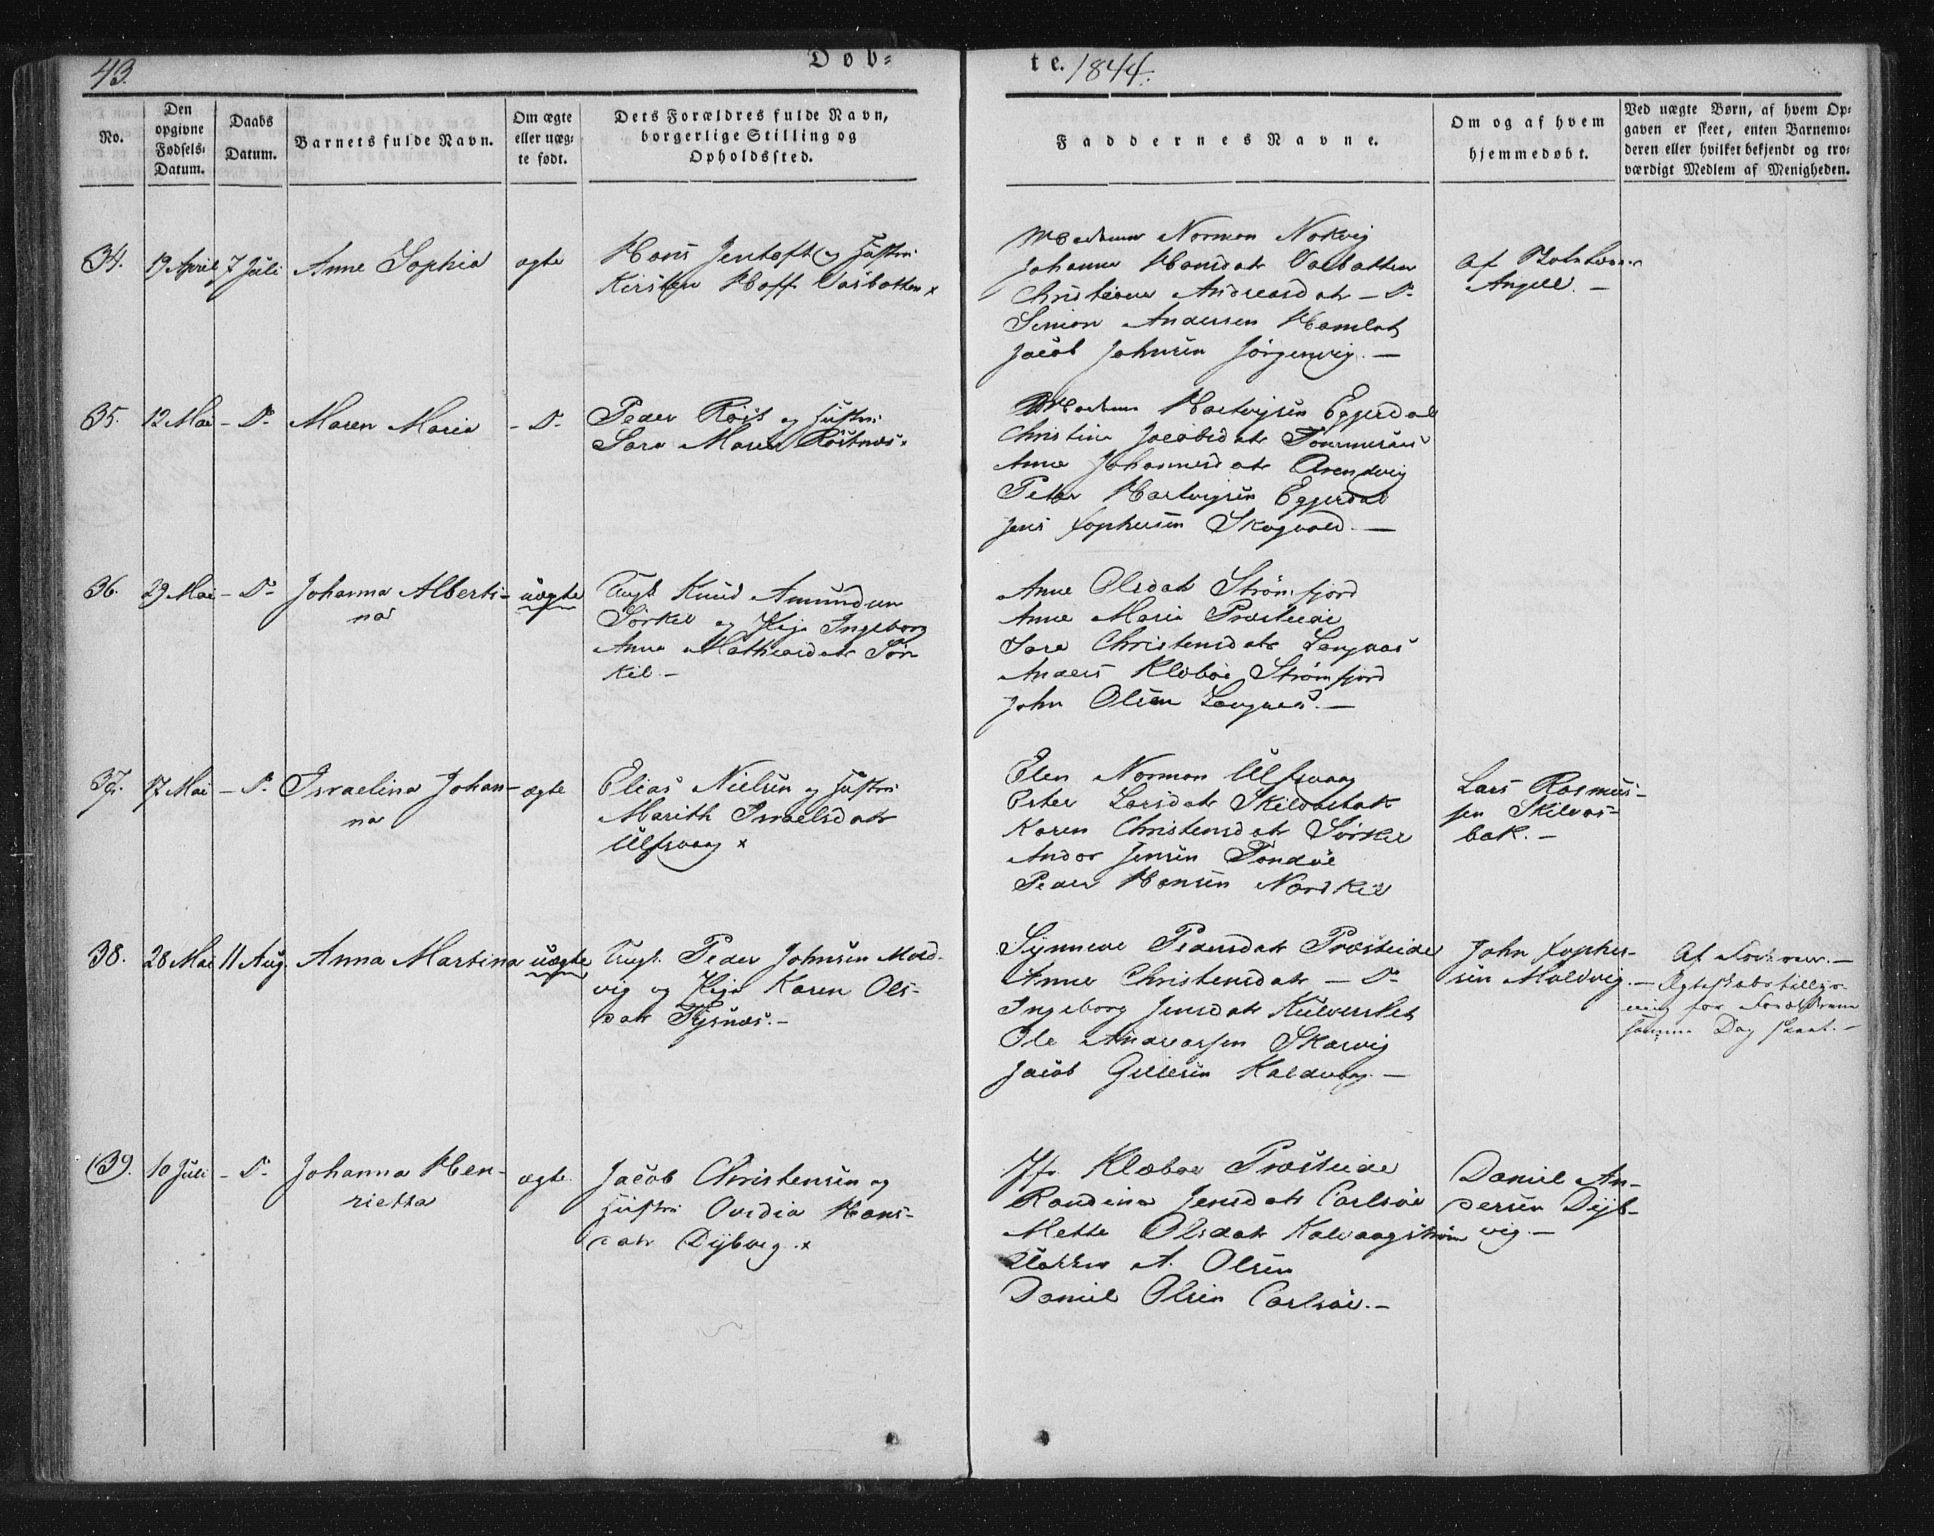 43.
Døb=
te. 1844.
No.
Den opgivne Fødsels-Datum.
Daabs Datum.
Barnets fulde Navn.
Om ægte eller uægte født.
Dets Forældres fulde Navn, borgerlige Stilling og Opholdssted.
Faddernes Navne.
Om og af hvem hjemmedøbt.
Ved uægte Børn, af hvem Opgaven er skeet, enten Barnemoderen eller hvilket bekjendt og troværdigt Medlem af Menigheden.
34.
19 April
7 Juli
Anne Sophia
ægte
Hans Jentoft og Hustru
Kirsten Hoff
Norman
Johanna Hansdatr
Andreasdatr - Do
Simon Andersen Hamlot
Jacob Johnsen Jørgenvig. —
Af
Angell. —
35.
12 Mai
- Do
Maren Maria
- Do
Peder Røst og Hustru
Sara Maria Røstnæs.
Hartvigsen Eggerdal
Christina Jacobsdatr
Anne Johannesdatr
Peter Hartvigsen Eggerdal
Jens Xophersen Skogvold. —
36.
29 Mai
- Do
Johanna Alberti-
na
uægte
Ungk. Knud Amundsen
Sørkil og Pige Ingeborg
Anna Mathiasdatr Sør
kil. —
Anne Olsdatr Strømfjord
Anne Maria Præsteide
Sara Christensdatr Langnæs
Anders Klæboe Strømfjord
John Olsen Langnæs. —
37.
17 Mai
- Do
Israelina Johan-
na
ægte
Elias Nielsen og Hustru
Marith Israelsdatr
Ulfsvaag x
Elen Norman Ulfsvaag
Ester Larsdatr Skilvasbak
Karen Christensdatr Sørkil
Andor Jensen Tondøe
Peder Hansen Nordkil
Lars Rasmus-
sen Skilvas-
bak. —
38.
28 Mai
11 Aug.
Anna Martina
uægte
Ungk. Peder Johnsen Mold-
vig og Pige Karen Ols-
datr
Synneve Pedersdatr Præsteide
Anne Christensdatr — Do
Ingeborg Jensdatr
Ole Andreassen Skarvig
Jacob
John Xopher-
sen Moldvig. —
Af
for Forældrene
samme Dag skeet. —
39.
10 Juli
- Do
Johanna Hen-
rietta
ægte
Jacob Christensen og
Hustru Ovidia Hans-
datr Dybvig. x
Jfr. Klæboe Præsteide
Randina Jensdatr Carlsøe
Mette Olsdatr Kalvaagstrøm
A. Olsen
Daniel Olsen Carlsøe. —
Daniel An-
dersen Dyb-
vig. —